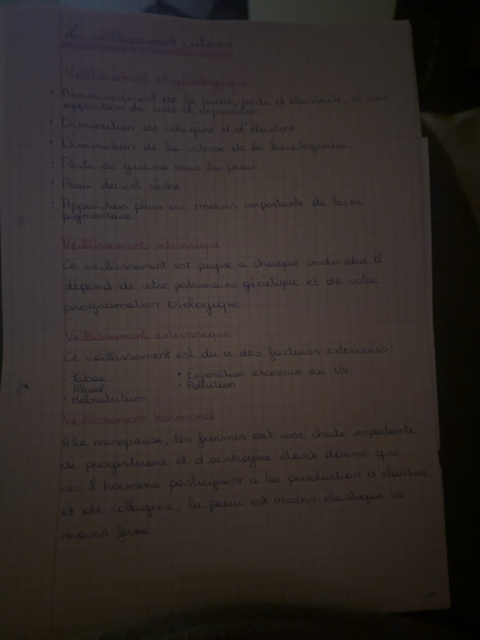 Le vieillissement cutané
Vieillissement physiologique
• Amincissement de la peau, perte d'élasticité, et une
apparition de ride d'expression
• Diminution de collagène et d'élastine
• Diminution de la vitesse de la
• Perte de graisse sous la peau
• Peau devient sèche
• Apparition plus ou moins importante de
pigmentaire
Vieillissement intrinsèque
Ce vieillissement est propre a chaque individu il
dépend de votre patrimoine génétique et de votre
programation biologique
Vieillissement extrinsèque
Ce vieillissement est du a des facteurs exterieurs:
• Tabac • Exposition excessive au UV
• Alcool • Pollution
• Malnutrition
Vieillissement hormonal
A la menopause, les femmes ont une chute importante
de progesterone et d'oestrogène étant donné que
ces 2 hormone participent a la production d'élastine
et de collagène, la peau est moins élastique et
moins